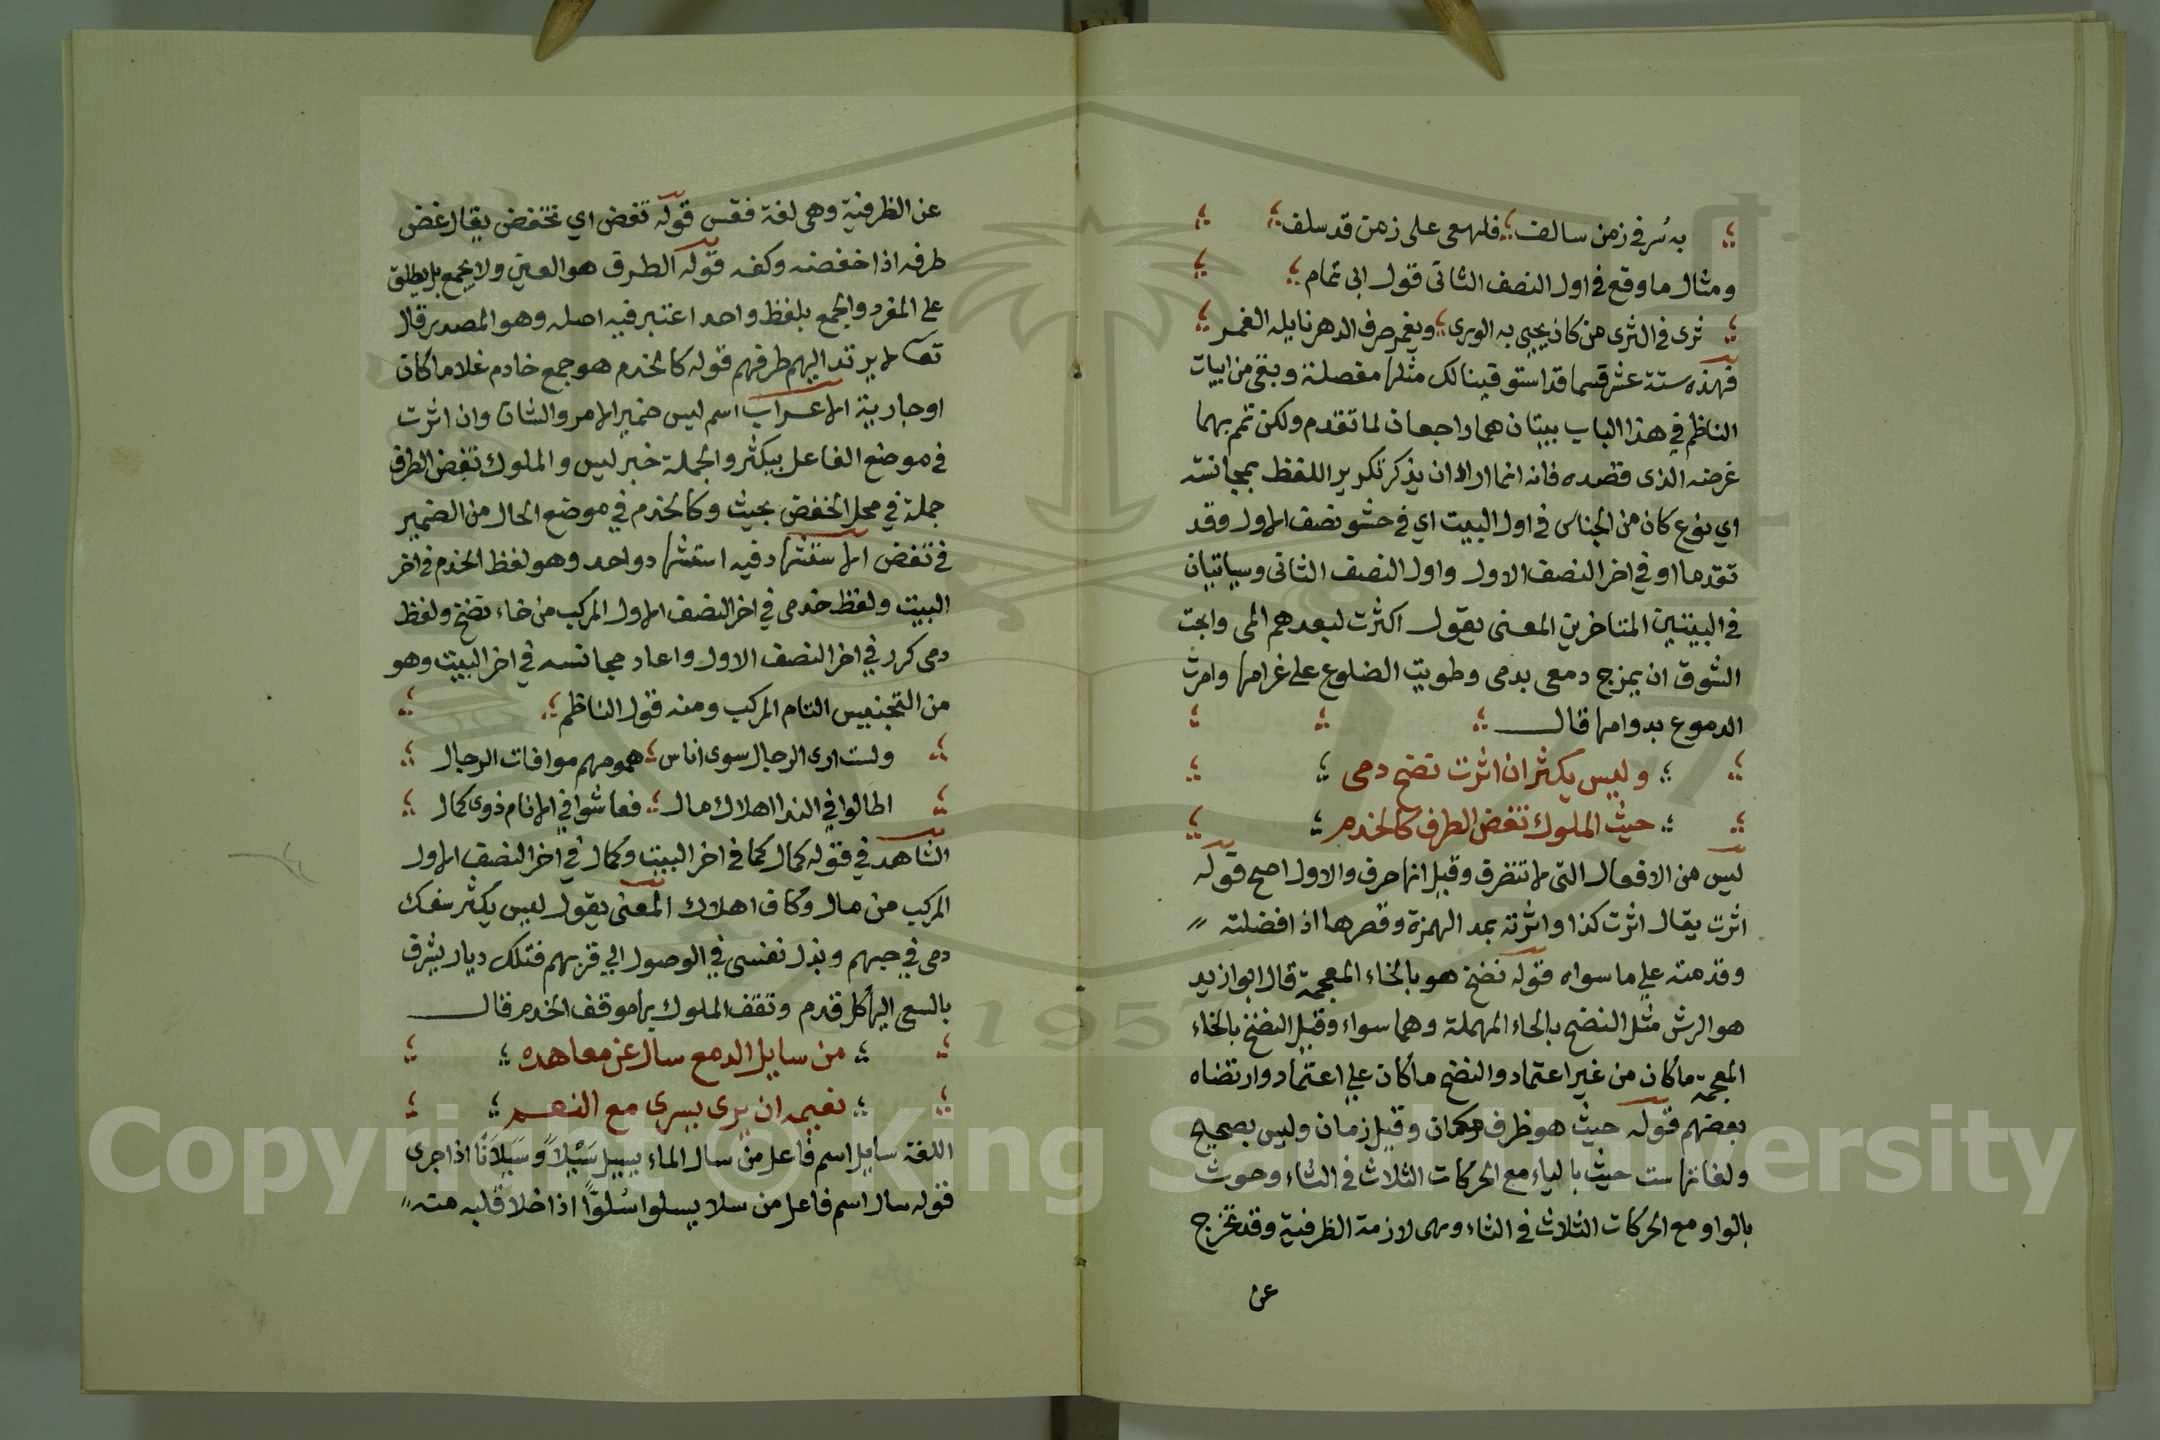 به سُر في زمن سالف فلهفي على زمن قد سلف
ومثال ما وقع في اول النصف الثاني قول ابي تمام
ثرى في الثرى من كان يحيى به الورى ويغمر صرف الدهر نايله الغمر
فهذه ستة عشر قسما قد استوفينا لك مثلها مفصلة وبقى من ابيات
الناظم في هذا الباب بيتان هما راجعان لما تقدم ولكن تمم بهما
غرضه الذى قصده فانه انما اراد ان يذكر تكرير اللفظ بمجانسه
اي نوع كان من الجناس في اول البيت اي في حشو نصف الاول وقد
تقدما او في اخر النصف الاول واول النصف الثاني وسياتيان
في البيتين المتاخرين المعنى يقول اكثرت لبعدهم المى وابحت
الشوق ان يمزج دمعى بدمى وطويت الضلوع على غرامها وامرت
الدموع بدوامها قال
وليس يكثر ان اثرت نضح دمى
حيث الملوك تغض الطرف كالخدم
ليس من الافعال التي لا تتصرف وقيل انها حرف والاول اصح قوله
اثرت يقال اثرت كذا واثرته بمد الهمزة وقصرها اذ افضلته
وقدمته على ما سواه قوله نضخ هو بالخاء المعجمة قال ابوا زيد
هو الرش مثل النضح بالحاء المهملة وهما سواء وقيل النضخ بالخاء
المعجمة ما كان من غير اعتماد والنضح ما كان على اعتماد وارتضاه
بعضهم قوله حيث هو ظرف مكان وقيل زمان وليس بصحيح
ولغاتها ست حيث بالياء مع الحركات الثلاث في الثاء وحوث
بالواو مع الحركات الثلاث في الثاء وهى لازمة الظرفية وقد تخرج
عن
عن الظرفية وهى لغة فقس قوله تغض اي تخفض يقال غض
طرفه اذا خفضه وكفه قوله الطرق هو العين ولا يجمع بل يطلق
على المفرد والجمع بلفظ واحد اعتبر فيه اصله وهو المصدر قال
تعا لا يرتد اليهم طرفهم قوله كالخدم هو جمع خادم غلاما كان
او جارية الاعراب اسم ليس ضمير الامر والشان وان اثرت
في موضع الفاعل بيكثر والجملة خبر ليس والملوك تغض الطرف
جملة في محل الخفض بحيث وكالخدم في موضع الحال من الضمير
في تغض الاستشهاد فيه استشهاد واحد وهو لفظ الخدم في اخر
البيت ولفظ خدمى في اخر النصف الاول المركب من خاء نضخ ولفظ
دمى كرر في اخر النصف الاول واعاد مجانسه في اخر البيت وهو
من التجنيس التام المركب ومنه قول الناظم
ولست ارى الرجال سوى اناس همومهم موافات الرجال
اطالوا في الندا اهلاك مال فعاشوا في الانام ذوى كمال
الشاهد في قوله كمال كما في اخر البيت وكمال في اخر النصف الاول
المركب من مال وكاف اهلاك المعنى يقول ليس يكثر سفك
دمى في حبهم وبذل نفسى في الوصول الى قربهم فتلك ديار يشرف
بالسعى اليها كل قدم وتقف الملوك بها موقف الخدم قال
من سايل الدمع سال عن معاهده
نعيمه ان يرى يسرى مع النعم
اللغة سايل اسم فاعل من سال الماء يسيل سَيْلاً وسَيَلاَنًا اذا جرى
قوله سال اسم فاعل من سلا يسلوا سُلوًّا اذا خلا قلبه منه
Copyright © King Saud University
1957